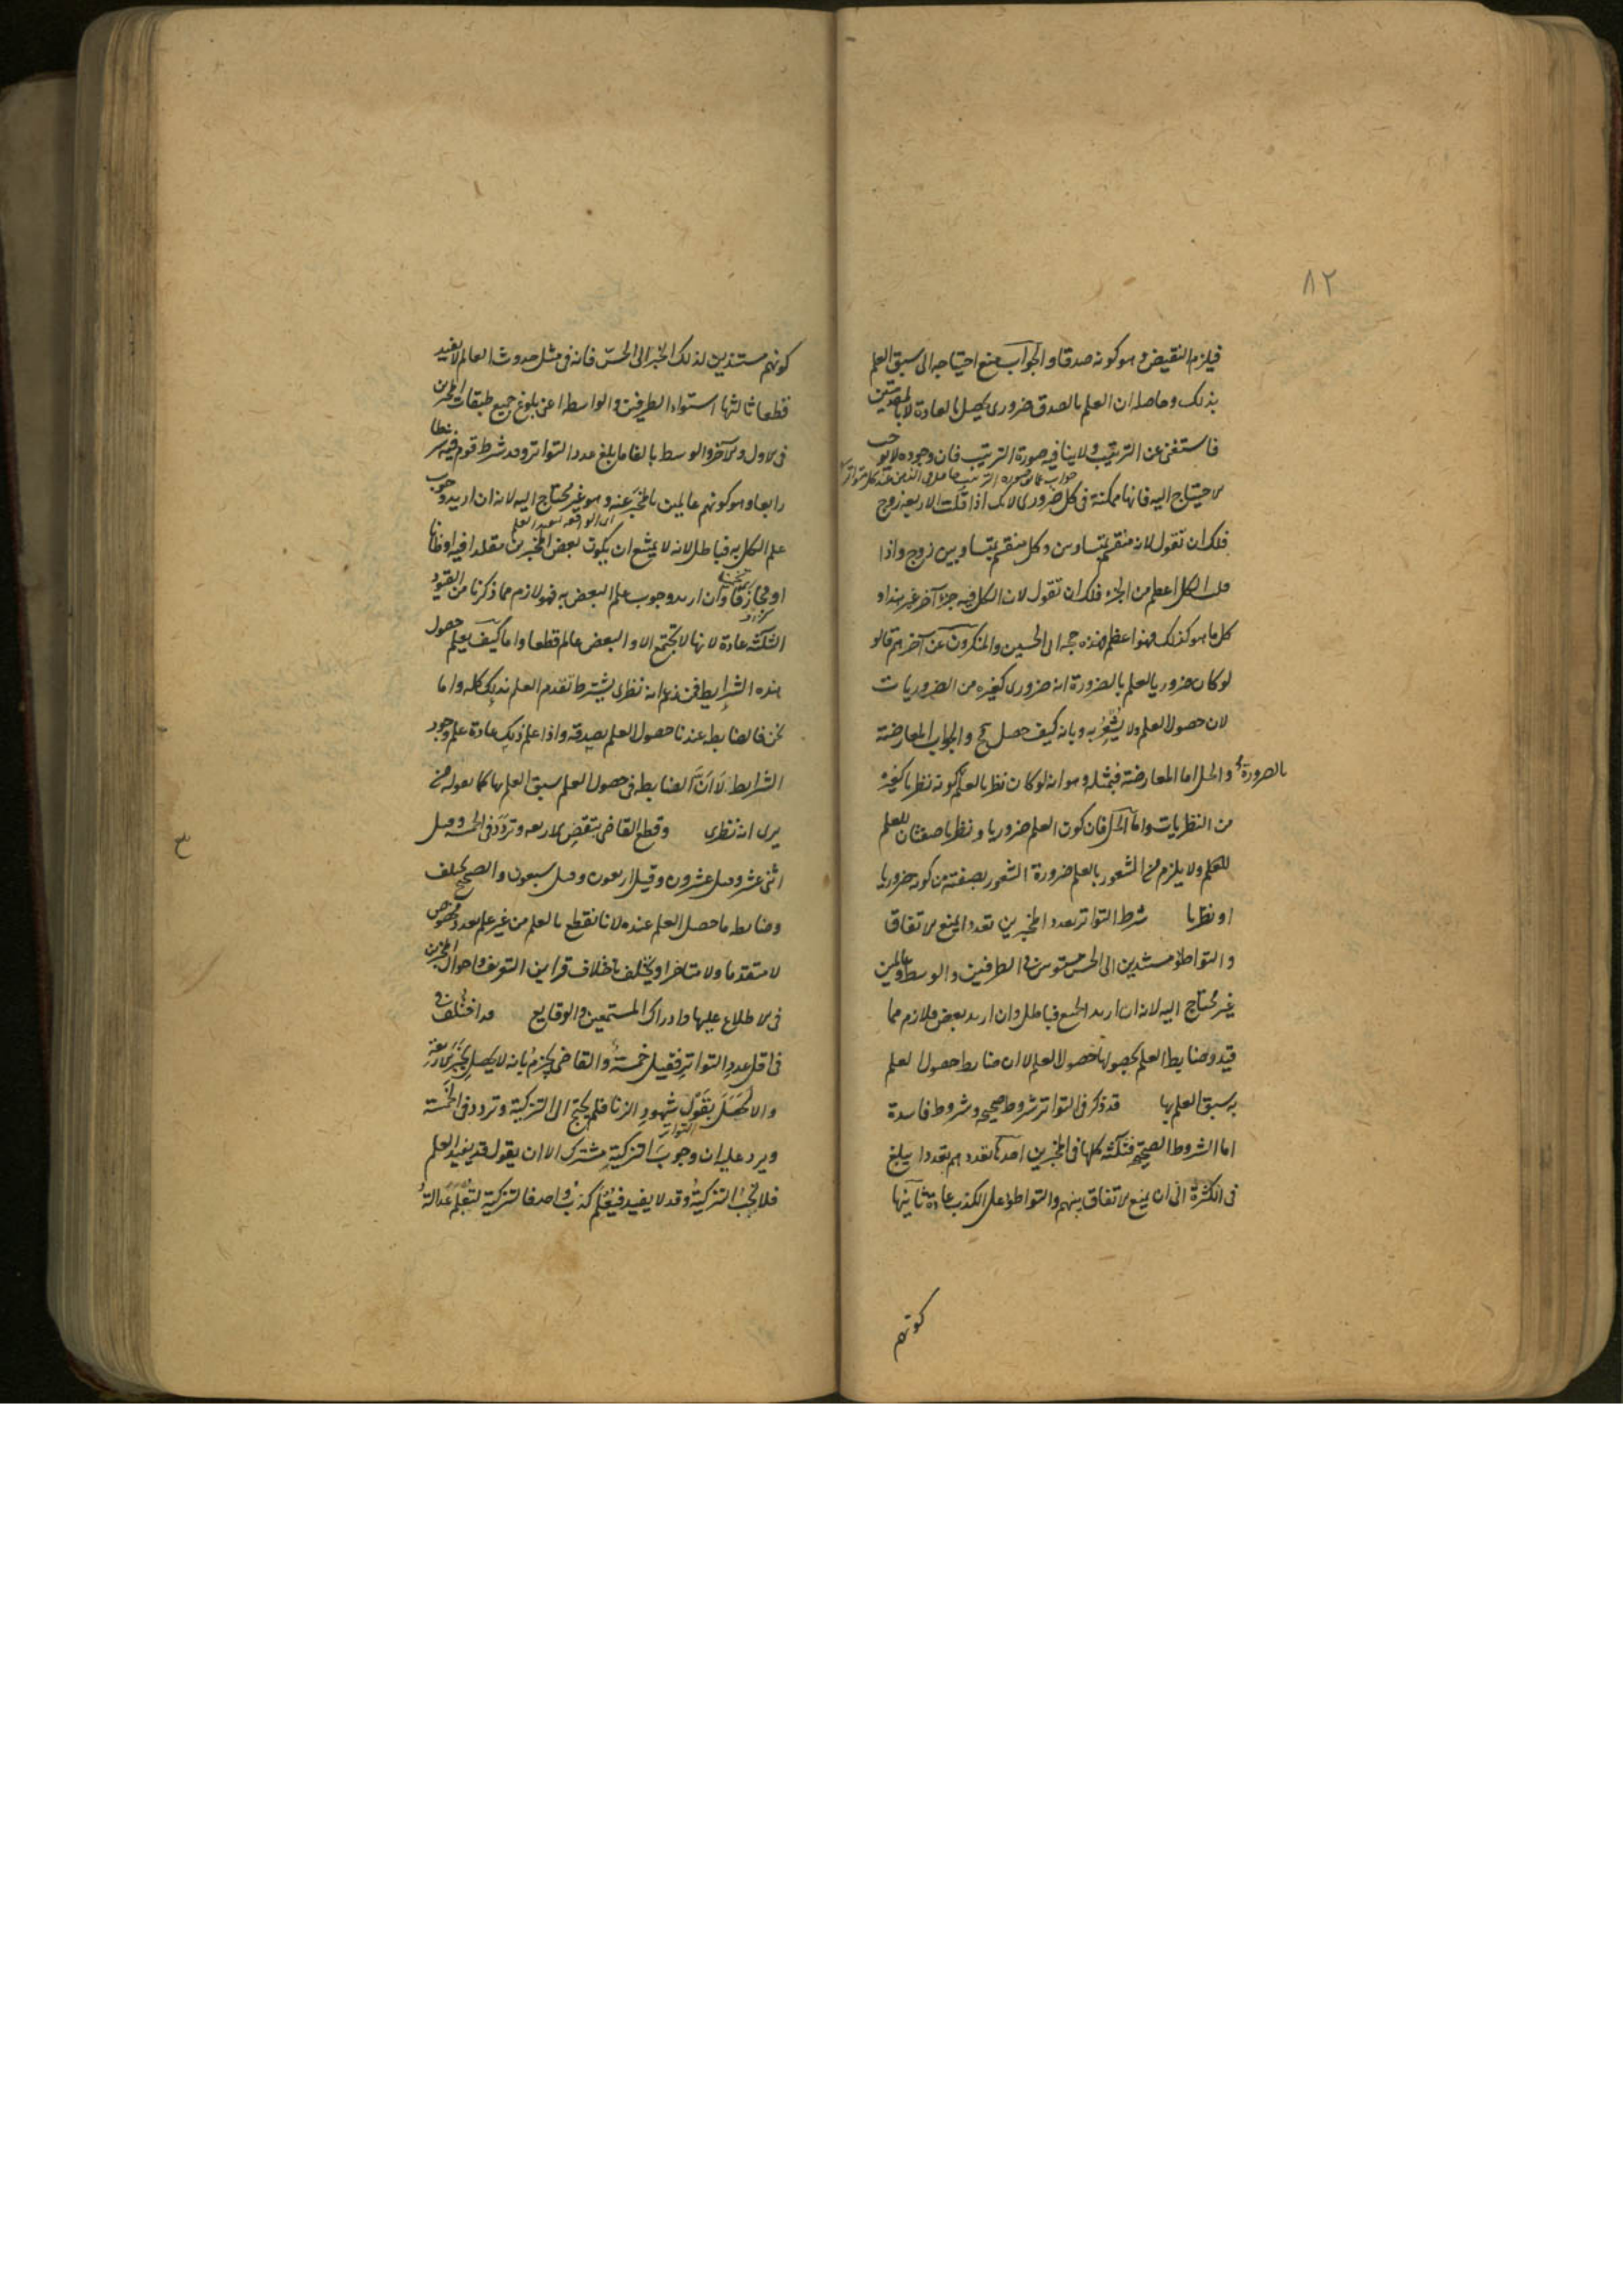 ٨٢
فيلزم النقيض وهو كونه صدقا والجواب منع احتياجه الى سبق العلم
بذلك وحاصله ان العلم بالصدق ضرورى يحصل بالعادة لا بالمقدمتين
فاستغنى عن الترتيب ولا ينافيه صورة الترتيب فان وجوده لا يوجب
جواب عما صورة الترتيب
الاحتياج اليه فانها ممكنة فى كل ضرورى لانك اذا قلت الاربعة زوج
فلك ان تقول لانه منقسم بمتساويين وكل منقسم بمتساويين زوج واذا
قلت الكل اعظم من الجزء فلك ان تقول لان الكل فيه جزء آخر غير هذا و
كل ما هو كذلك فهو اعظم هذه حجة ابى الحسين والمنكرون عن آخرهم قالو
لو كان ضروريا لعلم بالضرورة انه ضرورى كغيره من الضروريات
لان حصول العلم ولا يشعر به وبانه كيف حصل مح والجواب المعارضة
بالضرورة والحل اما المعارضة فبمثله وهو انه لو كان نظريا لعلم كونه نظريا كغيره
من النظريات واما الحل فان كون العلم ضروريا ونظريا صفتان للعلم
للعلم ولا يلزم من الشعور بالعلم ضرورة الشعور بصفته من كونه ضروريا
او نظريا شرط التواتر تعدد المخبرين تعددا يمنع الاتفاق
والتواطؤ مستندين الى الحس مستوين فى الطرفين والوسط وعالمين
غير محتاج اليه لانه ان اريد الجميع فباطل وان اريد بعض فلازم مما
قيد وضابط العلم بحصولها حصول العلم لا ان ضابط حصول العلم
به سبق العلم بها قد ذكر فى التواتر شروط صحيحة وشروط فاسدة
اما الشروط الصحيحة فثلثة كلها فى المخبرين احدها تعددهم تعددا يبلغ
فى الكثرة الى ان يمنع الاتفاق بينهم والتواطؤ على الكذب عادة ثانيها
كونهم
كونهم مستندين لذلك الخبر الى الحس فانه فى مثل حدوث العالم لا يفيد
قطعا ثالثها استواء الطرفين والواسطة اعنى بلوغ جميع طبقات المخبرين
فى الاول والآخر والوسط بالغا ما بلغ عدد التواتر وقد شرط قوم فيه شرطا
رابعا وهو كونهم عالمين بالمخبر عنه وهو غير محتاج اليه لانه ان اريد وجوب
علم الكل به فباطل لانه لا يمتنع ان يكون بعض المخبرين مقلدا فيه او ظانا
او مجازفا وان اريد وجوب علم البعض به فهو لازم مما ذكرنا من القيود
الثلثة عادة لانها لا تجتمع الا والبعض عالم قطعا واما كيف يعلم حصول
هذه الشرايط فمن زعم انه نظرى يشترط تقدم العلم بذلك كله واما
نحن فالضابط عندنا حصول العلم بصدقه واذا علم ذلك عادة علم وجود
الشرايط لا ان الضابط فى حصول العلم سبق العلم بها كما يقوله من
يرى انه نظرى وقطع القاضى بنقص الاربعة وتردد فى الخمسة وقيل
اثنى عشر وقيل عشرون وقيل اربعون وقيل سبعون والصحيح يختلف
وضابطه ما حصل العلم عنده لانا نقطع بالعلم من غير علم بعدد مخصوص
لا متقدما ولا متاخرا ويختلف باختلاف قراين التعريف واحوال المخبرين
فى الاطلاع عليها وادراك المستمعين والوقايع قد اختلف
فى اقل عدد التواتر فقيل خمسة والقاضى يجزم بانه لا يحصل بخبر اربعة
والا لحصل بقول شهود الزنا فلم يحتج الى التزكية وتردد فى الخمسة
ويرد عليه ان وجوب التزكية مشترك الا ان يقول قد يفيد العلم
فلا تجب التزكية وقد لا يفيد فيعلم كذب واحد فالتزكية لتعلم عدالة